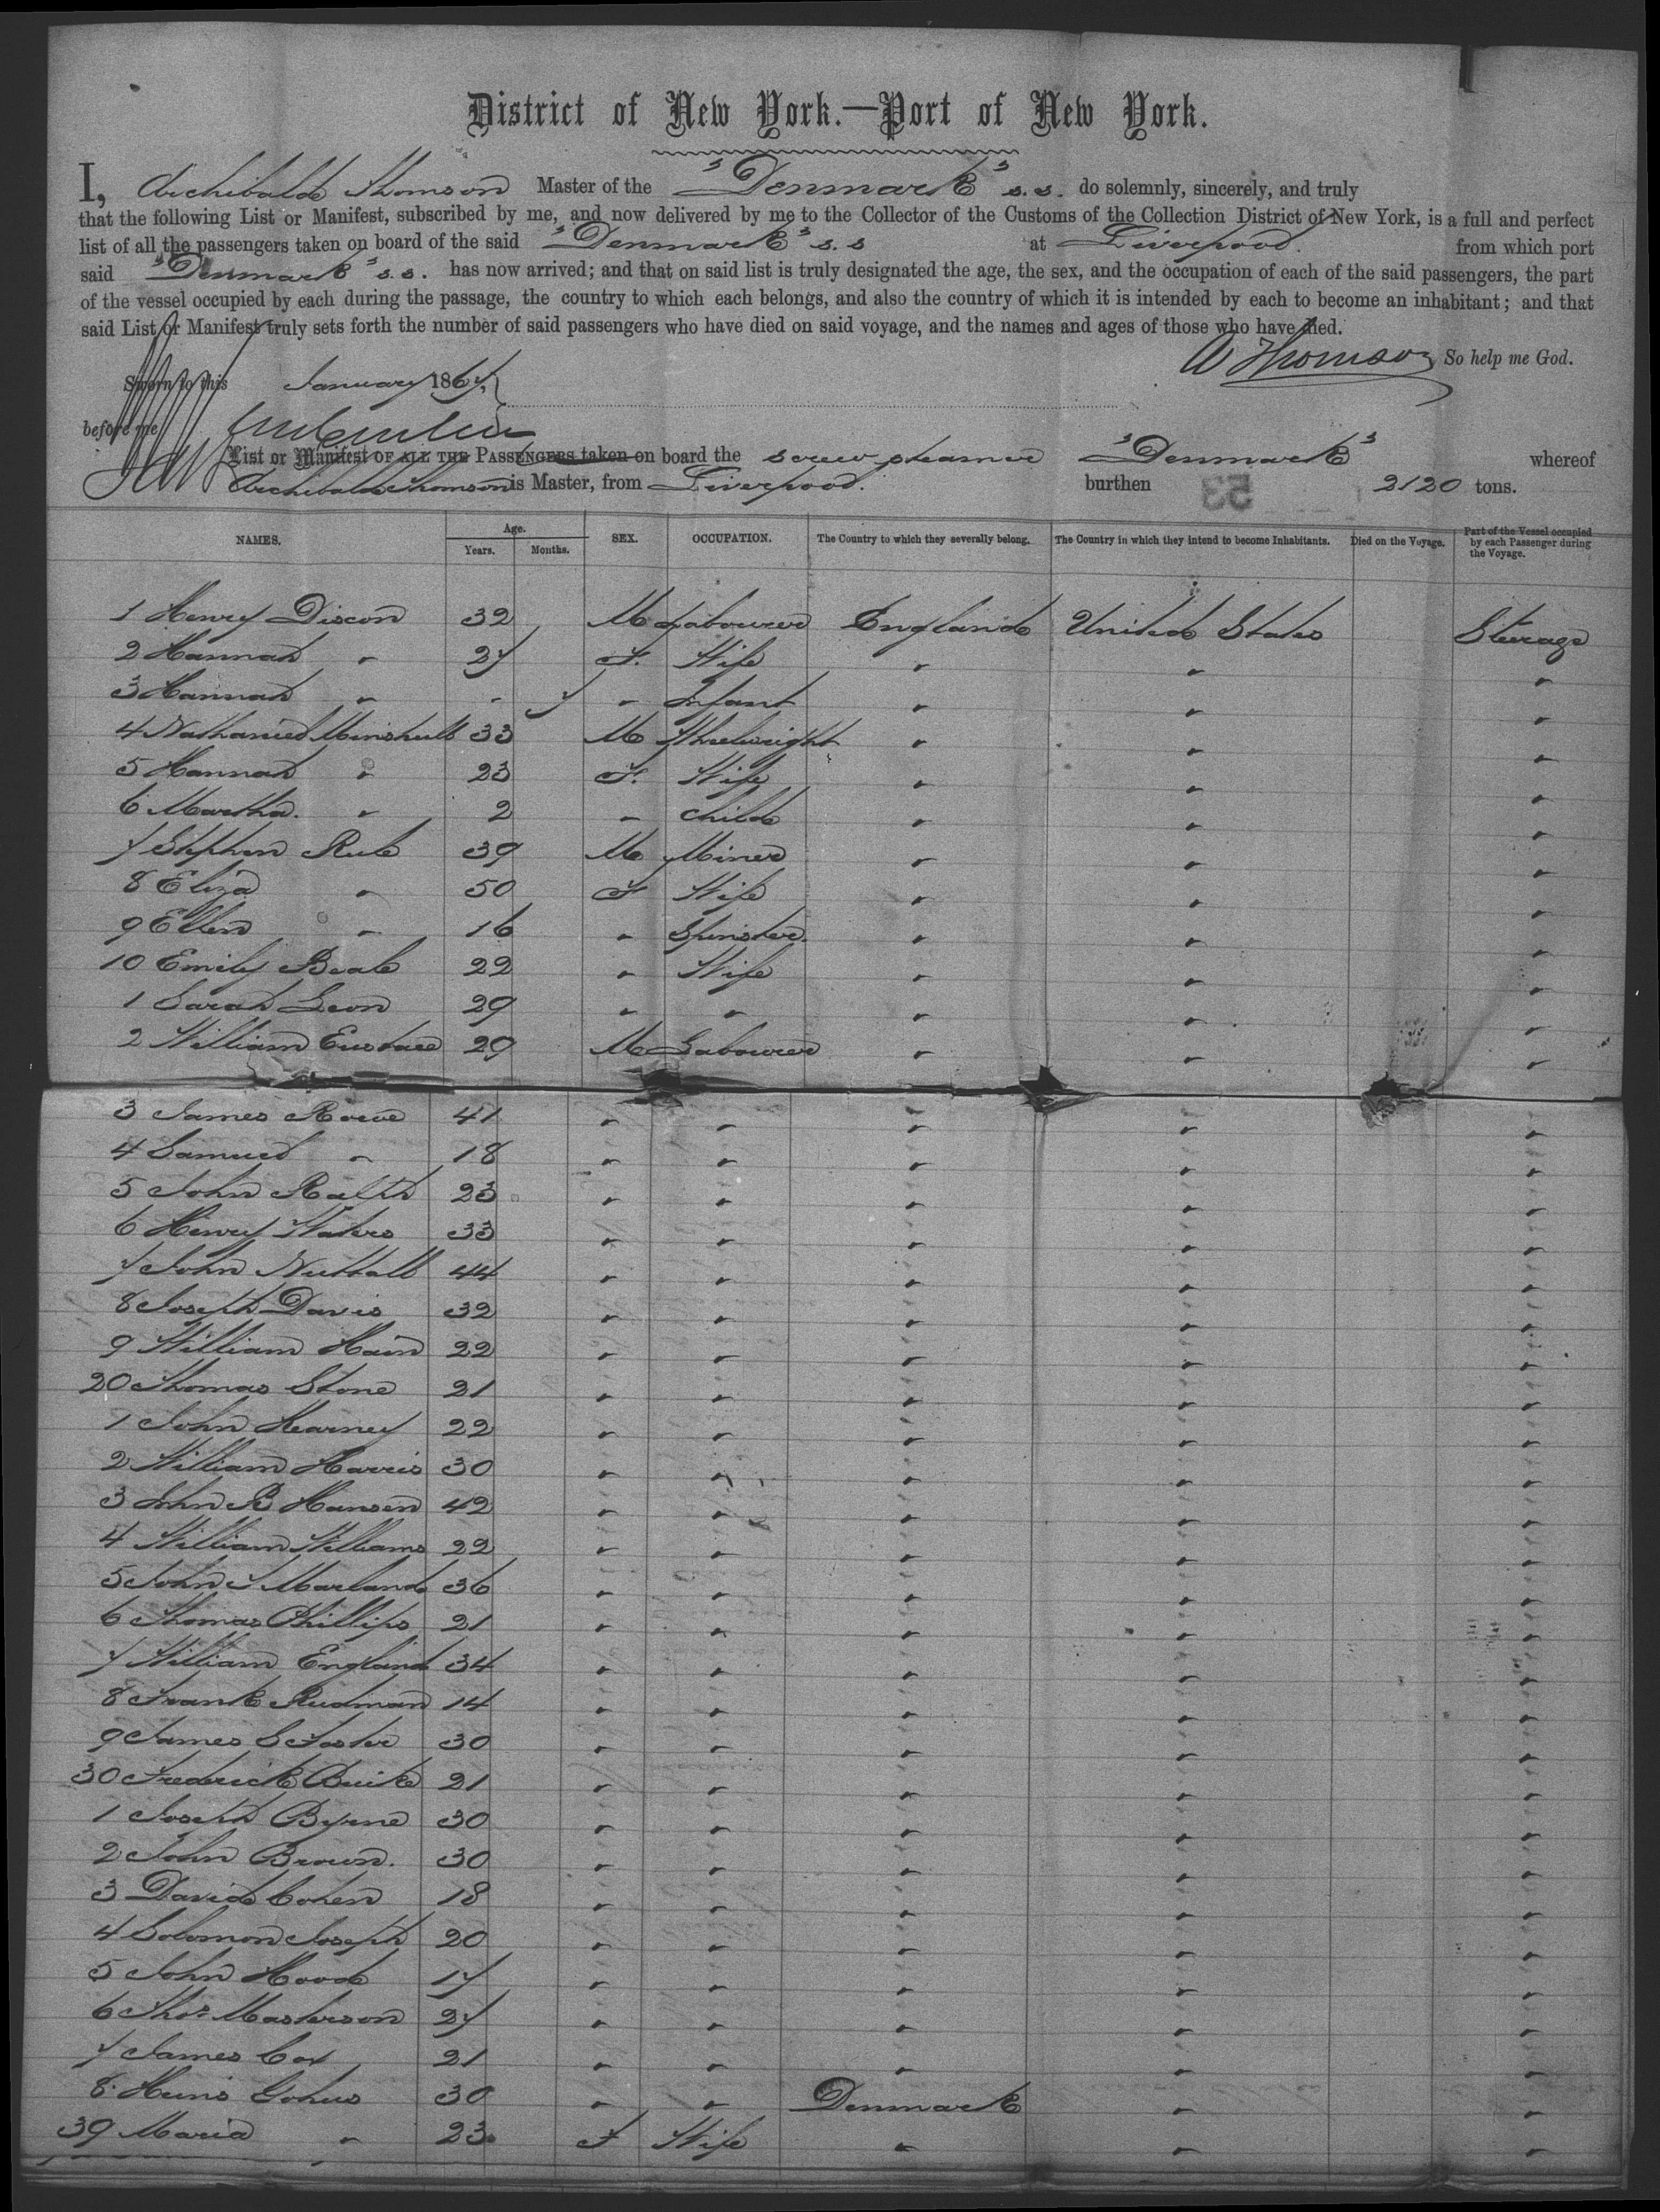 District of New York.—Port of New York.
I, Archibald Thomson Master of the "Denmark" s.s. do solemnly, sincerely, and truly
that the following List or Manifest, subscribed by me, and now delivered by me to the Collector of the Customs of the Collection District of New York, is a full and perfect
list of all the passengers taken on board of the said "Denmark" s.s at Liverpool. from which port
said "Denmark" s.s. has now arrived; and that on said list is truly designated the age, the sex, and the occupation of each of the said passengers, the part
of the vessel occupied by each during the passage, the country to which each belongs, and also the country of which it is intended by each to become an inhabitant; and that
said List or Manifest truly sets forth the number of said passengers who have died on said voyage, and the names and ages of those who have died.
A Thomson So help me God.
Sworn to this January 1867
before me
List or Manifest OF ALL THE PASSENGERS taken on board the screw steamer "Denmark" whereof
Archibald Thomson is Master, from Liverpool. burthen 2120 tons.
53
NAMES. Age. Years. Months. SEX. OCCUPATION. The Country to which they severally belong. The Country in which they intend to become Inhabitants. Died on the Voyage. Part of the Vessel occupied by each Passenger during the Voyage.
1 Henry Discon 32 M Labourer England United States Steerage
2 Hannah " 27 F. Wife " " "
3 Hannah " - 7 " Infant " " "
4 Nathaniel Minshull 33 M Wheelwright " " "
5 Hannah " 23 F. Wife " " "
6 Martha. " 2 " Child " " "
7 Stephen Rule 39 M Miner " " "
8 Eliza " 50 F Wife " " "
9 Ellen " 16 " Spinster. " " "
10 Emily Beale 22 " Wife " " "
1 Sarah Leon 29 " " " " "
2 William Eustace 29 M Labourer " " "
3 James Rowe 41 " " " " "
4 Samuel " 18 " " " " "
5 John Ralph 23 " " " " "
6 Henry Waters 33 " " " " "
7 John Nuttall 44 " " " " "
8 Joseph Davis 32 " " " " "
9 William Hain 22 " " " " "
20 Thomas Stone 21 " " " " "
1 John Kearney 22 " " " " "
2 William Harris 30 " " " " "
3 John B Hansen 42 " " " " "
4 William Williams 22 " " " " "
5 John S Marland 36 " " " " "
6 Thomas Phillips 21 " " " " "
7 William England 34 " " " " "
8 Frank Rudman 14 " " " " "
9 James S Foster 30 " " " " "
30 Frederick 21 " " " " "
1 Joseph Byrne 30 " " " " "
2 John Brown. 30 " " " " "
3 David Cohen 18 " " " " "
4 Solomon Joseph 20 " " " " "
5 John Hood 17 " " " " "
6 Thos Masterson 27 " " " " "
7 James Cox 21 " " " " "
8. 30 " " Denmark " "
39 Maria " 23 F Wife " " "